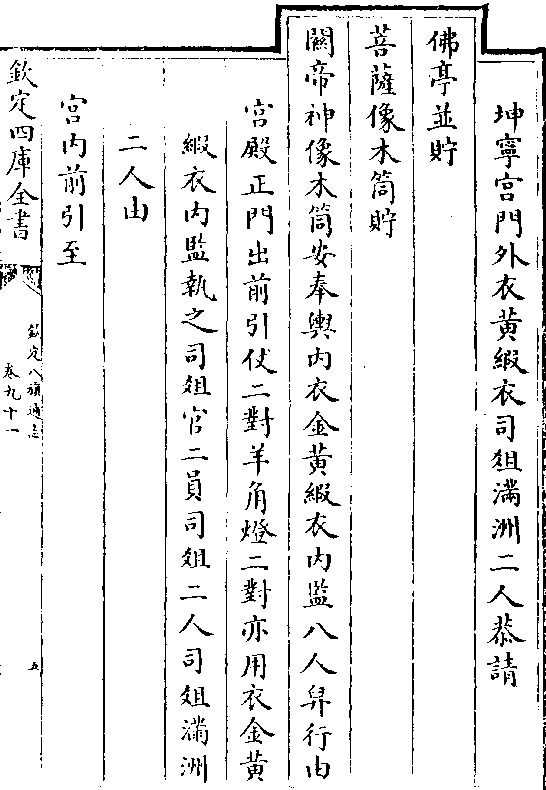 坤寧宫門外衣黄緞衣司俎滿洲二人恭請
佛亭並貯
菩薩像木筒貯
關帝神像木筒安奉輿内衣金黄緞衣内監八人舁行由
宫殿正門出前引仗二對羊角燈二對亦用衣金黄
緞衣内監執之司俎官二員司俎二人司俎滿洲
二人由
宫内前引至
欽定四庫全書
欽定八旗通志
卷九十一
五